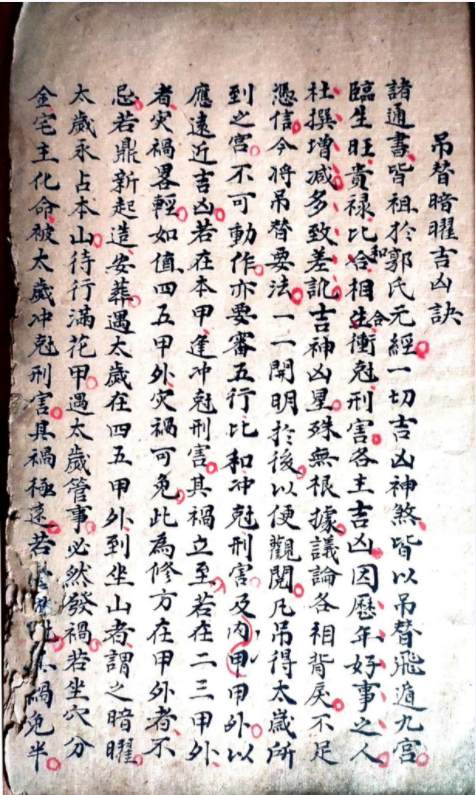 吊替暗曜吉凶訣
諸通書皆祖於郭氏元經一切吉凶神煞皆以吊替飛遁九宮
臨生旺貴禄比和合相生合衝尅刑害各主吉凶因歷年好事之人
杜撰增减多致差訛吉神凶星殊無根據議論各相背戾不足
憑信今將吊替要法一一開明於後以便觀閱凡吊得太歲所
到之宮不可動作亦要審五行比和冲尅刑害及内甲甲外以
應遠近吉凶若在本甲逢冲尅刑害其禍立至若在二三甲外
者灾禍畧輕如值四五甲外灾禍可免此為修方在甲外者不
忌若鼎新起造安葬遇太歲在四五甲外到坐山者謂之暗曜
太歲永占本山待行滿花甲遇太歲管事必然發禍若坐穴分
金宅主化命被太歲冲尅刑害其禍極速若禍免半